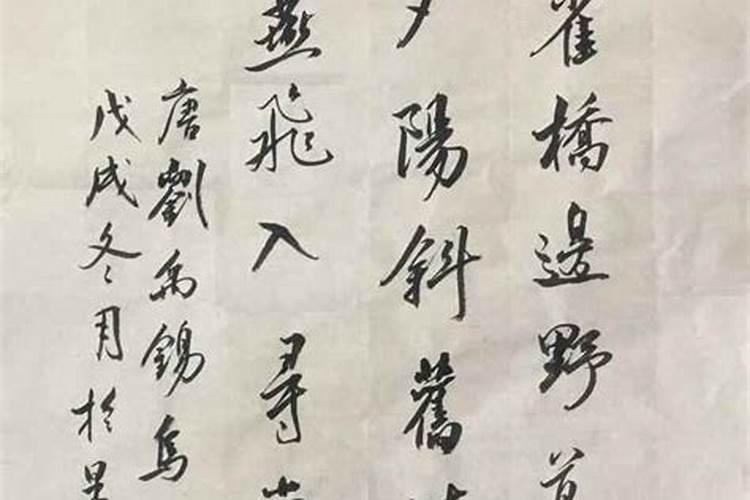 雀橋邊野
夕陽斜舊時
燕飛入尋常
唐劉禹錫烏
戊戌冬月於